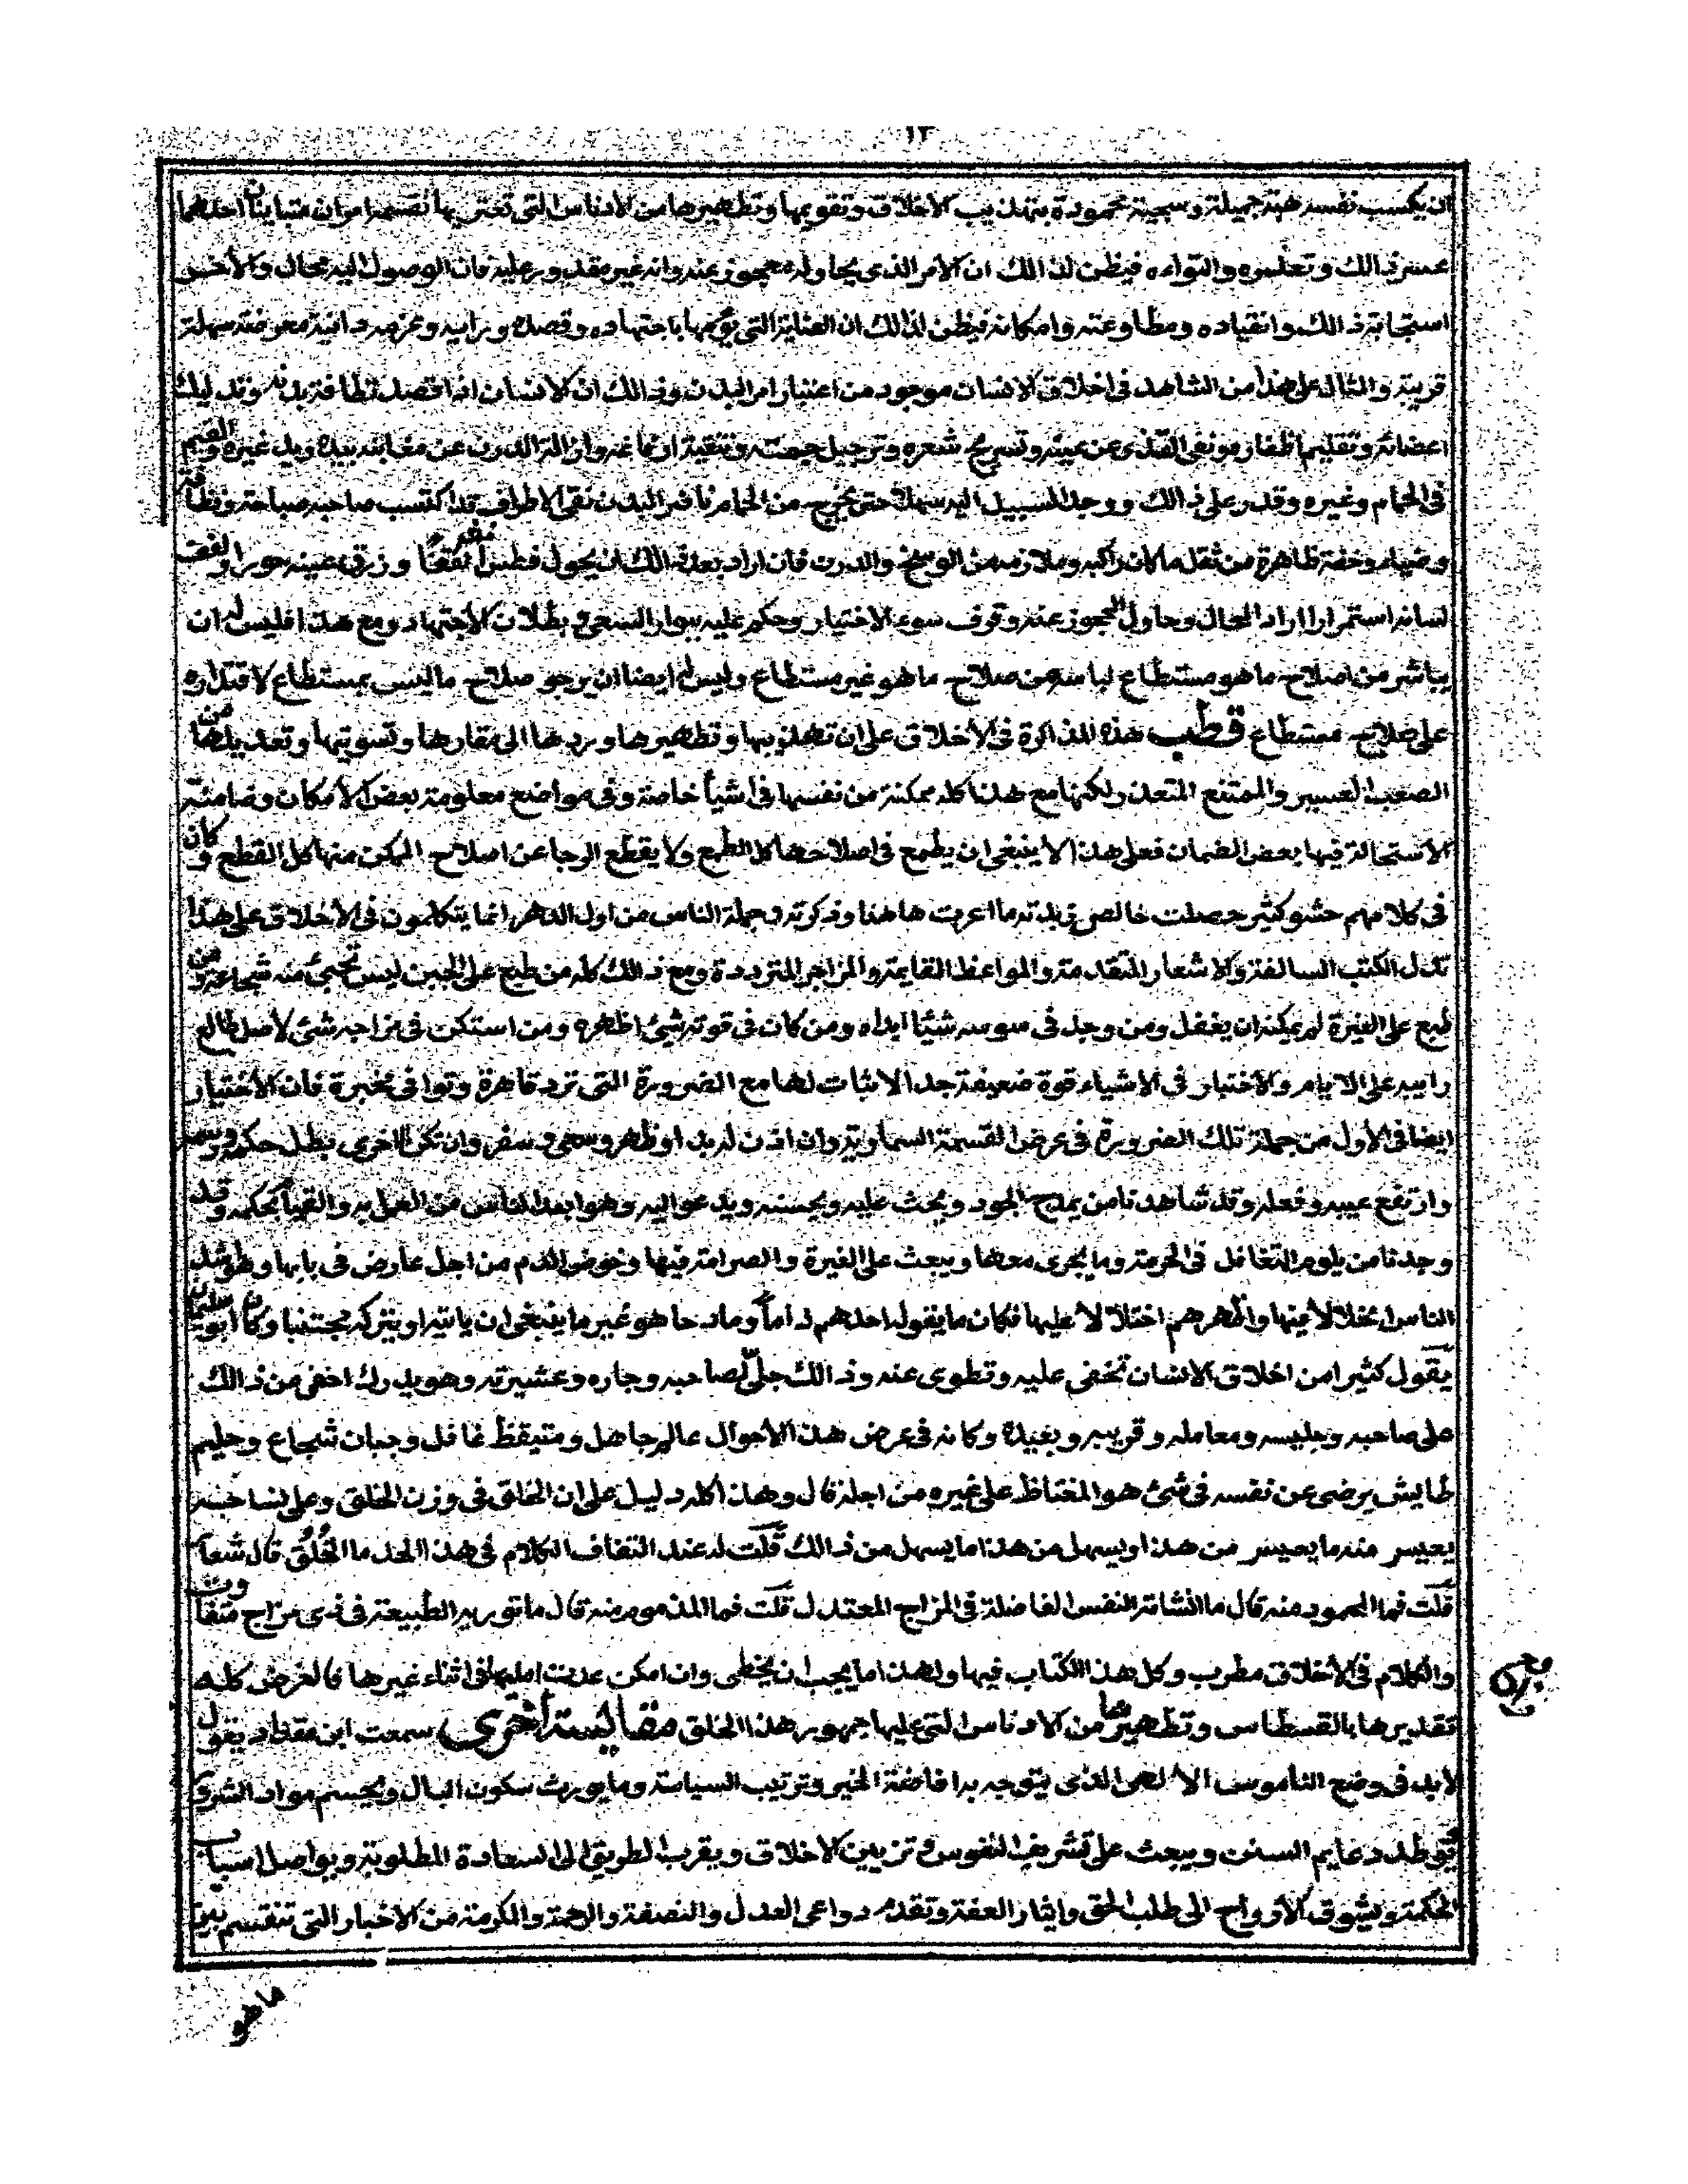 ١٢
ان يكسب نفسه هيئة جميلة وسجية محمودة بتهذيب الاخلاق وتقويمها وتطهيرها من الادناس التى تعتريها تقسمه امران متباينان احدهما
عسر ذالك وتعلسره والتواءه فيظن لذالك ان الامر الذى يحاوله معجوز عنه وانه غير مقدور عليه فان الوصول اليه محال والأخر
استجابة ذالك وانقياده ومطاوعته وامكانه فيظن لذالك ان الغناية التى يؤمها باجتهاده وقصده ورايه وعزمه دانية معرضة سهلة
قريبة والمثال على هذا من الشاهد فى اخلاق الانسان موجود من اعتبار امر البدن وذالك ان الانسان اذا قصد نظافة بدنه وتدليك
اعضائه وتقليم اظفاره ونفى القذى عن عينه وتسريح شعره وترجيل جمته وتنقية ارفاغه وازالة الدرن عن مغابنه بيده ويد غيره والقيم
فى الحمام وغيره وقدر على ذالك ووجد السبيل اليه سهلا حتى يخرج من الحمام نافر البدن نقى الاطراف قد اكتسب صاحبه صباحة ونظافة
وضياء وخفة ظاهرة من ثقل ما كان راكبه وملازمه من الوسخ والدرن فان اراد بعد ذالك ان يحول فطس انفه وزرق عينه حورا
لسانه استمرارا اراد المحال وحاول المعجوز عنه وقرف سوء الاختيار وحكم عليه ببوار السعى وبطلان الاجتهاد ومع هذا فليس له ان
يباشر من اصلاح ما هو مستطاع لياسه من صلاح ما هو غير مستطاع وليس له ايضا ان يرجو صلاح ما ليس بمستطاع لاقتداره
على صلاح مستطاع قطب هذه المذاكرة فى الأخلاق على ان تهذيبها وتطهيرها وردها الى مقارها وتسويتها وتعديلها من
الصعب العسير والممتنع المتعذر ولكنها مع هذا كله ممكنة من نفسها فى اشيأ خاصة وفى مواضع معلومة بعض الأمكان وضامنة
الاستحالة فيها بعض الضمان فعلى هذا لا ينبغى ان يطمع فى اصلاحها كل الطمع ولا يقطع الرجا عن اصلاح الممكن منها كل القطع وكان
فى كلامهم حشو كثير حصلت خالص زبدته ما اعربت هاهنا وذكرته وجملة الناس من اول الدهر انما يتكلمون فى الأخلاق على هذا
تدل الكتب السالفة والاشعار المتقدمة والمواعظ القايمة والمزاجر المترددة ومع ذالك كله من طبع على الجبن ليس تجئ منه شجاعة ومن
طبع على الغيرة لم يمكنه ان يغفل ومن وجد فى سوسه شيئا ابداه ومن كان فى قوته شئ اظهره ومن استكن فى مزاجه شئ
رايه على الايام والأختبار فى الاشياء قوة ضعيفة جدا لا ثبات لها مع الضرورة التى ترد قاهرة وتوافى مخبرة فان الأختيار
ايضا فى الأول من جملة تلك الضرورة فى عرض القسمة السماوية وان اذن له بدا وظهر وسعى وسفر وان تكن الاخرى بطل حكمه
وارتفع عيبه وفعله وقد شاهدنا من يمدح الجود ويحث عليه ويحسنه ويدعو اليه وهو ابعد الناس من العمل به والقيام بحكمه وقد
وجدنا من يلوم التغافل فى الحرمة وما يجرى معها ويبعث على الغيرة والصرامة فيها وخوض الدم من اجل عارض فى بابها وهو اشد
الناس انحلالا فيها واظهرهم اختلالا عليها فكان ما يقوله احدهم ذاماً ومادحا هو غير ما ينبغى ان ياتيه او يتركه مجتنبا وكان ابو سليمان
يقول كثيرا من اخلاق الانسان تخفى عليه وتطوى عنه وذالك جلىّ لصاحبه وجاره وعشيرته وهو يدرك اخفى من ذالك
على صاحبه وجليسه ومعامله وقريبه وبعيده وكانه فى عرض هذه الأحوال عالم جاهل ومتيقظ غافل وجبان شجاع وحليم
طايش يرضى عن نفسه فى شئ هو المغتاظ على غيره من اجله قال وهذا كله دليل على ان الخلق فى وزن الخلق وعلى نساجته
يعيسر منه ما يعيسر من هذا او يسهل من هذا ما يسهل من ذالك قلت له عند التفاف الكلام فى هذا الحد ما الخُلُق قال شعار
قلت فما المحمود منه قال ما انشاته النفس الفاضلة فى المزاج المعتدل قلت فما المذموم منه قال ما توريه الطبيعة فى ذى مزاج متفاوت
والكلام فى الأخلاق مطرب وكل هذا الكتاب فيها ولهذا ما يجب ان يخطى وان امكن عدت اليها فى اثناء غيرها فالغرض كله
تقديرها بالقسطاس وتطهيرها من الادناس التى عليها جمهور هذا الخلق مقابسة أخرى سمعت ابن مقداد يقول
لابد فى وضع الناموس الالهى الذى يتوجه به افاضة الخير وترتيب السياسة وما يورث سكون البال ويحسم مواد الشر و
يوطد دعايم السنن ويبعث على تشريف النفوس وتزيين الاخلاق ويقرب الطريق الى السعادة المطلوبة ويواصل اسباب
الحكمة ويشوق الأرواح الى طلب الحق وايثار العفة وتقدم دواعى العدل والنصفة والرحمة والكرمة من الاخبار التى تنقسم بين
ماهو